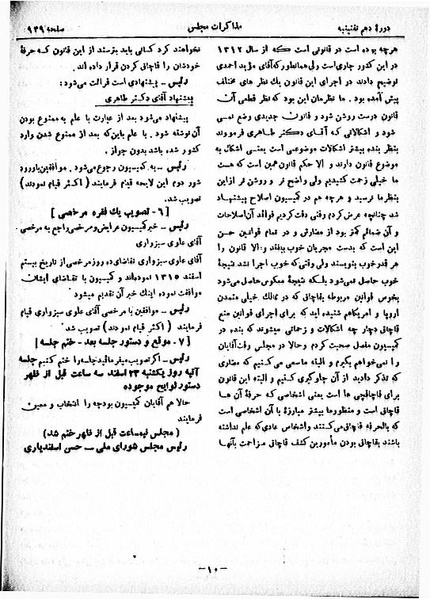 دورهٔ دهم تقنینیه
مذاکرات مجلس
صفحه ۹۲۹
هرچه بوده است در قانونی است که از سال ۱۳۱۲
در این کشور جاری است ولی همانطور که آقای مؤید احمدی
توضیح دادند در اجرای این قانون یک نظر های مختلف
پیش آمده بود. ما نظرمان این بود که نظر قطعی آن
قانون درست روشن شود و قانون جدیدی وضع
شود و اشکالاتی که آقای دکتر طاهری فرمودند
بنظر بنده بیشتر اشکالات موضوعی است یعنی اشکال به
موضوع قانون دارند و الا حکم قانون همین است که هست
ما خیلی زحمت کشیدیم ولی واضح تر و روشن تر از این
بنظر ما نرسید و هر چه هم در کمیسیون اصلاح پیشنهاد
شد چنانچه عرض کردم وقتی دقت کردیم فوائد آن اصلاحات
و آن ضمائم کمتر بود از مضارش و در تمام قوانین حسن
این است که بدست مجریان خوب بیافتد والا قانون را
هر قدر خوب بنویسند ولی وقتی که خوب اجرا نشد نتیجهٔ
خوب حاصل نمیشود بلکه نتیجهٔ معکوس حاصل میشود
بخصوص قوانین مربوطه بقاچاق که در ممالک خیلی متمدن
اروپا و امریکا هم شنیده اید که برای اجرای قوانین منع
قاچاق دچار چه اشکالات و زحماتی میشوند که بنده در
کمیسیون مفصل صحبت کردم و حالا در مجلس وقت آقایان
را نمیخواهم بگیرم و البته ماسعی می کنیم که مضاری
که تذکر دادید از آن جلوگیری کنیم و البته این قانون
برای قاچاقچی ها است یعنی اشخاصی که حرفهٔ آن ها
قاچاق است و منظور ما بیشتر مبارزه با آن اشخاص است
که بالحرفه قاچاقی می کنند و اشخاص عادی که علم نداشته
باشند بقاچاق بودن مأمورین کشف قاچاق مزاحمت بآنها
نخواهند کرد کسانی باید بترسند از این قانون که حرفهٔ
خودشان را قاچاق کردن قرار داده اند.
رئیس - پیشنهادی است قرائت می شود:
پیشنهاد آقای دکتر طاهری
پیشنهاد می‌شود بعد از عبارت با علم به ممنوع بودن
آن نوشته شود. با علم باین که بعد از ممنوع شدن وارد
کشور شده باشد بدون جواز.
رئیس - به کمیسیون رجوع می‌شود. موافقین باورود
شور دوم این لایحه قیام فرمایند (اکثر قیام نمودند)
تصویب شد.
[۶ - تصویب یک فقره مرخصی]
رئیس - خبر کمیسیون عرایض و مرخصی راجع به مرخصی
آقای علوی سبزواری
آقای علوی سبزواری تقاضای ده روز مرخصی از تاریخ بیستم
اسفند ۱۳۱۵ نموده‌اند و کمیسیون با تقاضای ایشان
موافقت نموده اینک خبر آن تقدیم میشود
رئیس - موافقین با مرخصی آقای علوی سبزواری قیام
فرمایند (اکثر قیام نمودند) تصویب شد.
[۷ - موقع و دستور جلسه بعد - ختم جلسه]
رئیس - اگر تصویب میفرمائید جلسه را ختم کنیم جلسه
آتیه روز یکشنبه ۲۳ اسفند سه ساعت قبل از ظهر
دستور لوایح موجوده
حالا هم آقایان کمیسیون بودجه را انتخاب و معین
فرمایند
(مجلس نیمساعت قبل از ظهر ختم شد)
رئیس مجلس شورای ملی - حسن اسفندیاری
-۱۰-